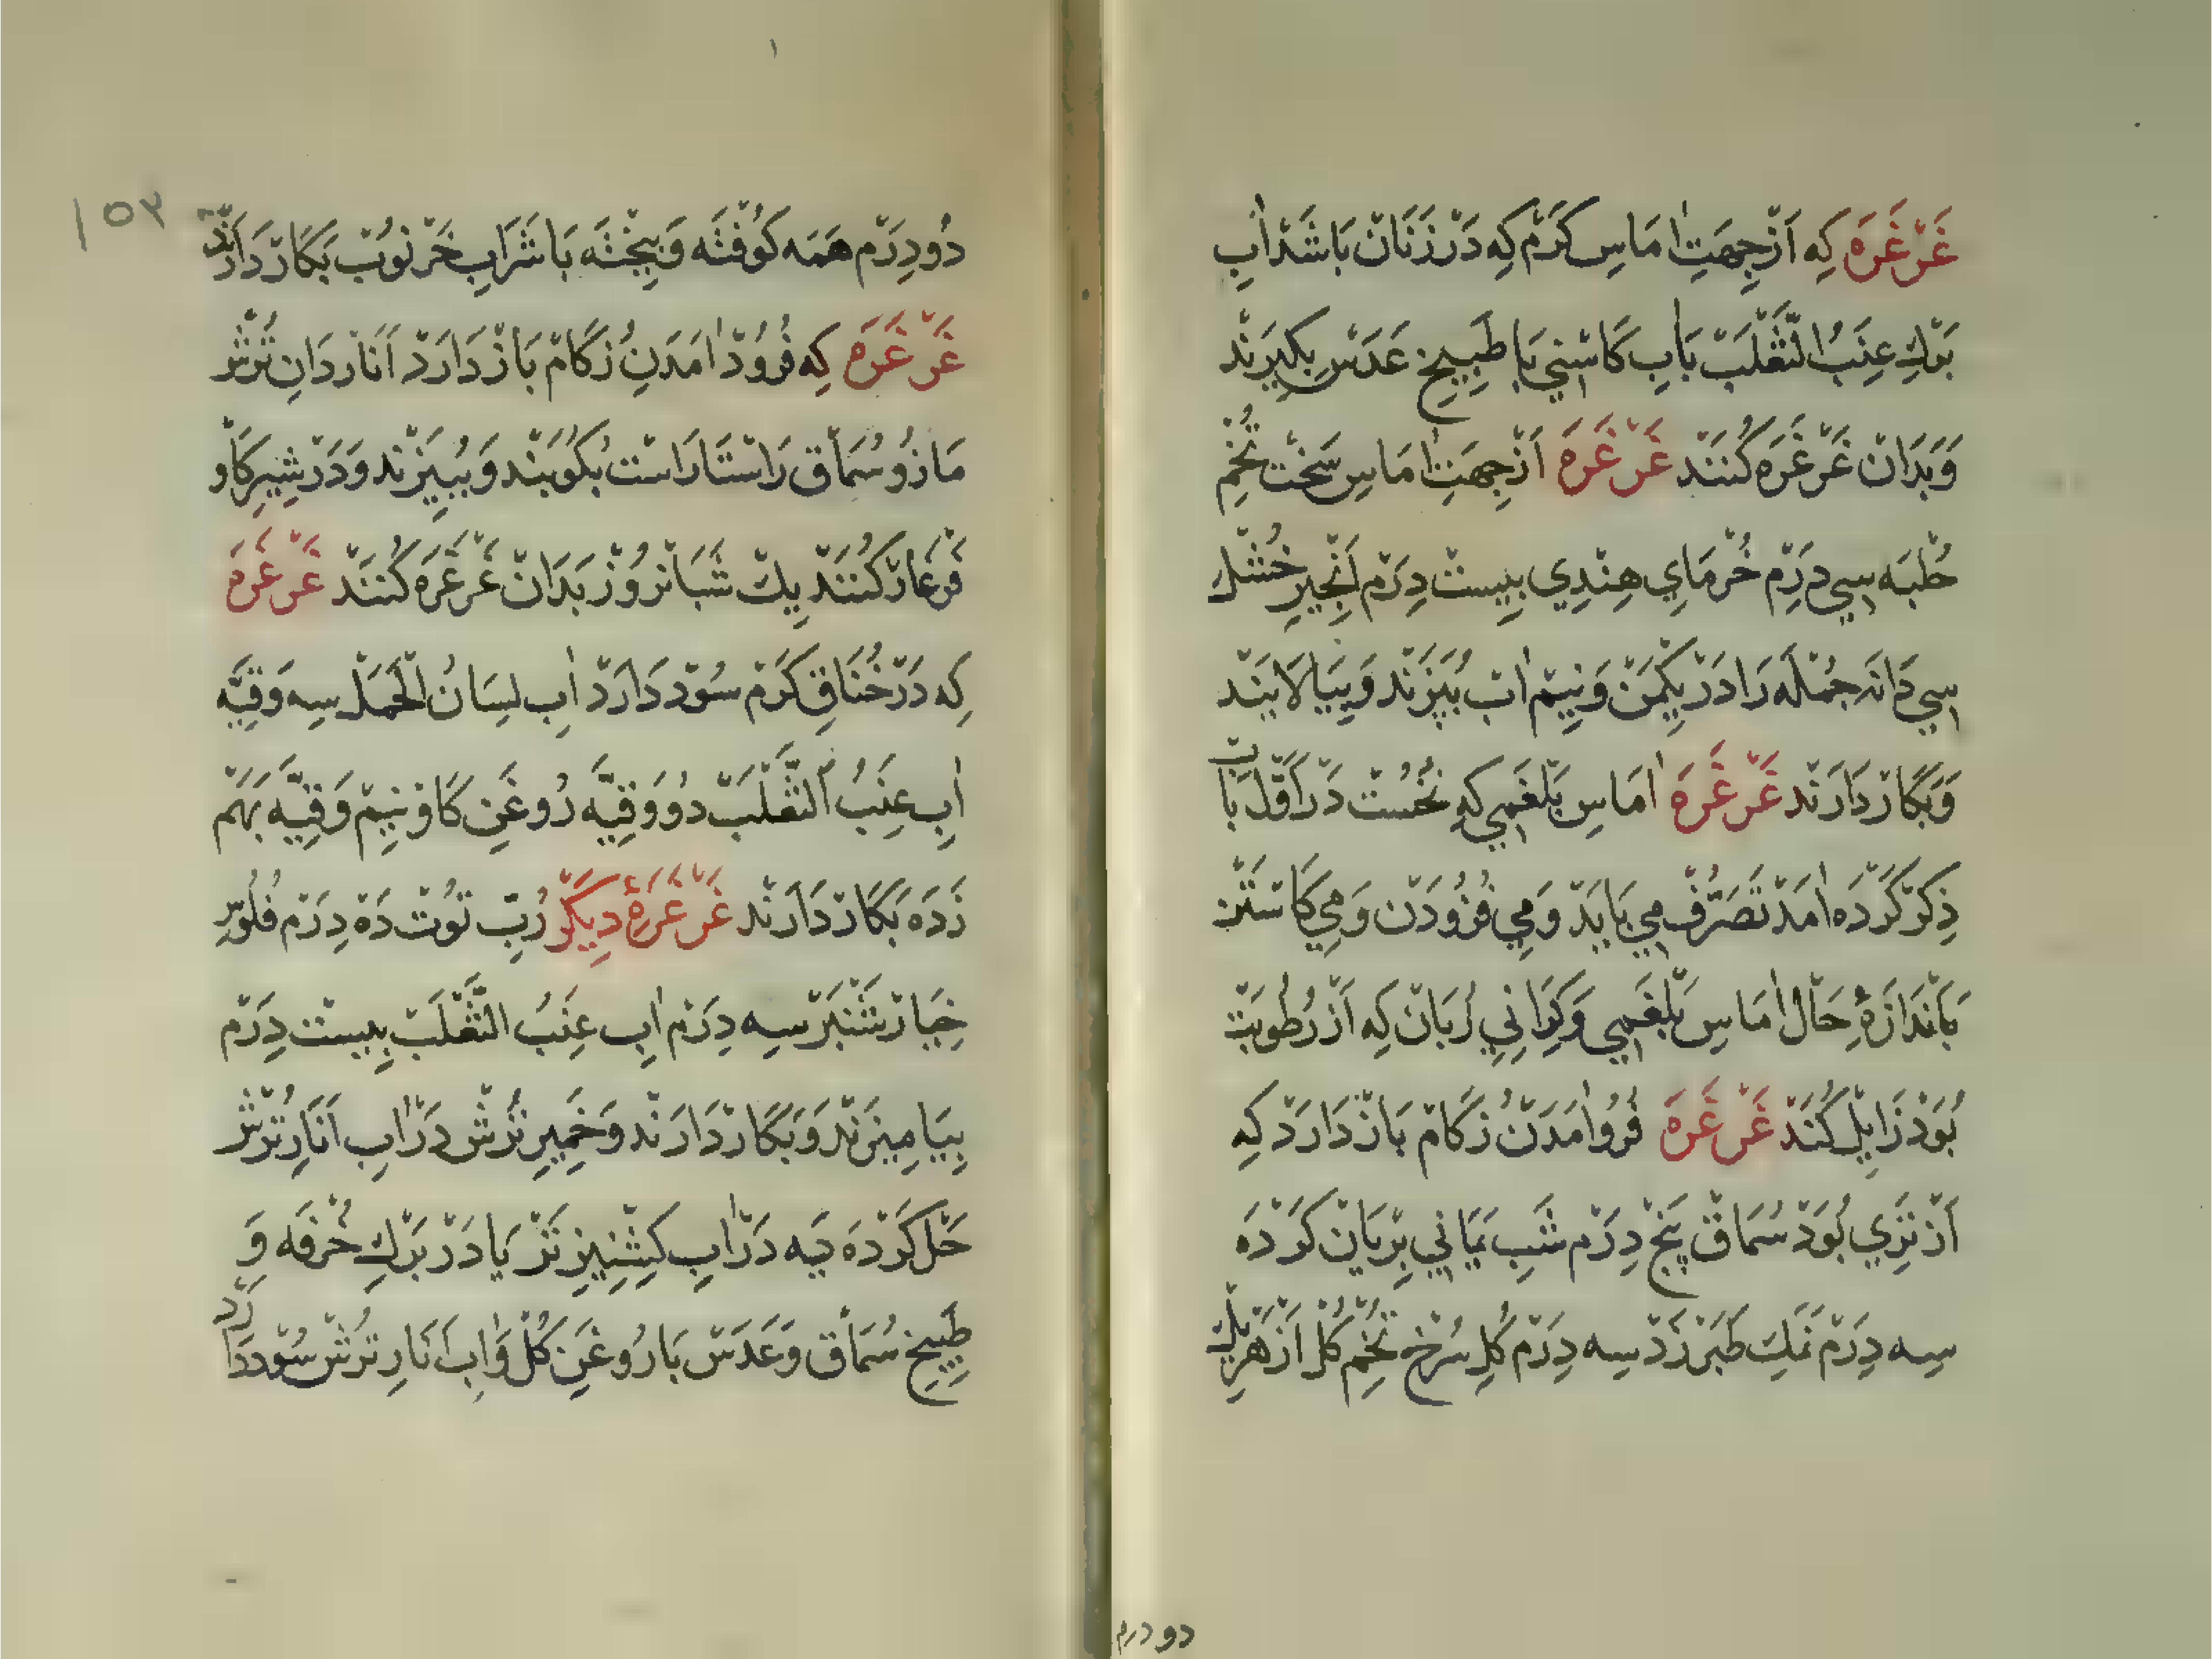 غَرْغَرَه كِه اَزْ جِهَتِ اٰمَاسِ كَرْم كِه دَرْ زَنَانْ بَاشَدْ اٰبِ
بَرْكِ عِنَبُ الثَّعْلَبْ بَابِ كَاسْنِي يَا طَبِيخِ عَدَسْ بِكِيرَنْد
وَبَدَانْ غَرْغَرَه كُنَنْد غَرْغَرَه اَزْ جِهَتِ اٰمَاسِ سَخْت تُخْمِ
حُلْبَه سِي دِرَمْ خُرْمَايِ هِنْدِي بِيسْتْ دِرَمْ اَنْجِيرِ خُشْك
سِي دَانَه جُمْلَه رَا دَرْ يِكْمَنْ وَنِيمْ اٰبْ بُپَزَنْد وَبِيَالَايَنْد
وَبَكَارْ دَارَنْد غَرْغَرَه اٰمَاسِ بَلْغَمِي كِه نُخُسْتْ دَرْ اَوَّلْ بَابْ
ذِكْرْ كَرْدَه اٰمَدْ تَصَرُّفْ مِي بَايَدْ وَمِي فُزُودَنْ وَمِي كَاسْتَنْ
بَاَنْدَازَهٔ حَالْ اٰمَاسِ بَلْغَمِي وَكِرَانِي زُبَانْ كِه اَزْ رُطُوبَتْ
بُوَدْ زَايِلْ كُنَدْ غَرْغَرَه فُرُو اٰمَدَنْ زُكَامْ بَازْ دَارَدْ كِه
اَزْ تَرِي بُوَدْ سُمَاقْ پَنْجْ دِرَمْ شَبِ يَمَانِي بِرْيَانْ كَرْدَه
سِه دِرَمْ نَمَكِ طَبَرْزَدْ سِه دِرَمْ كُلِ سُرْخ تُخْمِ كُلْ اَزْ هَرْيَكْ
دو درم
١٥٣
دُو دِرَمْ هَمَه كُوفْتَه وَبِيخْتَه بَا شَرَابِ خَرْنُوبْ بَكَارْ دَارَنْدْ
غَرْغَرَه كِه فُرُودْ اٰمَدَنِ زُكَامْ بَازْ دَارَدْ اَنَارْدَانِ تُرْش
مَازُو سُمَاق رَاسْتَارَاسْت بُكُوبَنْد وَبِبِيزَنْد وَدَرْ شِيرِ كَاو
فَرْغَارْ كُنَنْد يِكْ شَبَانْرُوزْ بَدَانْ غَرْغَرَه كُنَنْد غَرْغَرَه
كِه دَرْ خُنَاقِ كَرَمْ سُود دَارَدْ اٰبِ لِسَانُ الْحَمَلْ سِه وَقِيَّه
اٰبِ عِنَبُ الثَّعْلَبْ دُو وَقِيَّه رُوغَنِ كَاوْ نِيمْ وَقِيَّه بَهَمْ
زَدَه بَكَارْ دَارَنْد غَرْغَرَهٔ دِيكَرْ رُبّ تُوتْ دَه دِرَمْ فُلُوسِ
خِيَارْشَنْبَرْ سِه دِرَمْ اٰبِ عِنَبُ الثَّعْلَبْ بِيسْتْ دِرَمْ
بِيَامِيزَنْد وَبَكَارْ دَارَنْد وَخَمِيرِ تُرُشْ دَرْ اٰبِ اَنَارِ تُرْش
حَلْ كَرْدَه بِه دَرْ اٰبِ كِشْنِيزِ تَرْ يَا دَرْ بَرْكِ خُرْفَه وَ
طَبِيخِ سُمَاق وَعَدَسْ بَا رُوغَنِ كُلْ وَاٰبِ اَنَارِ تُرُشْ سُود دَارَدْ